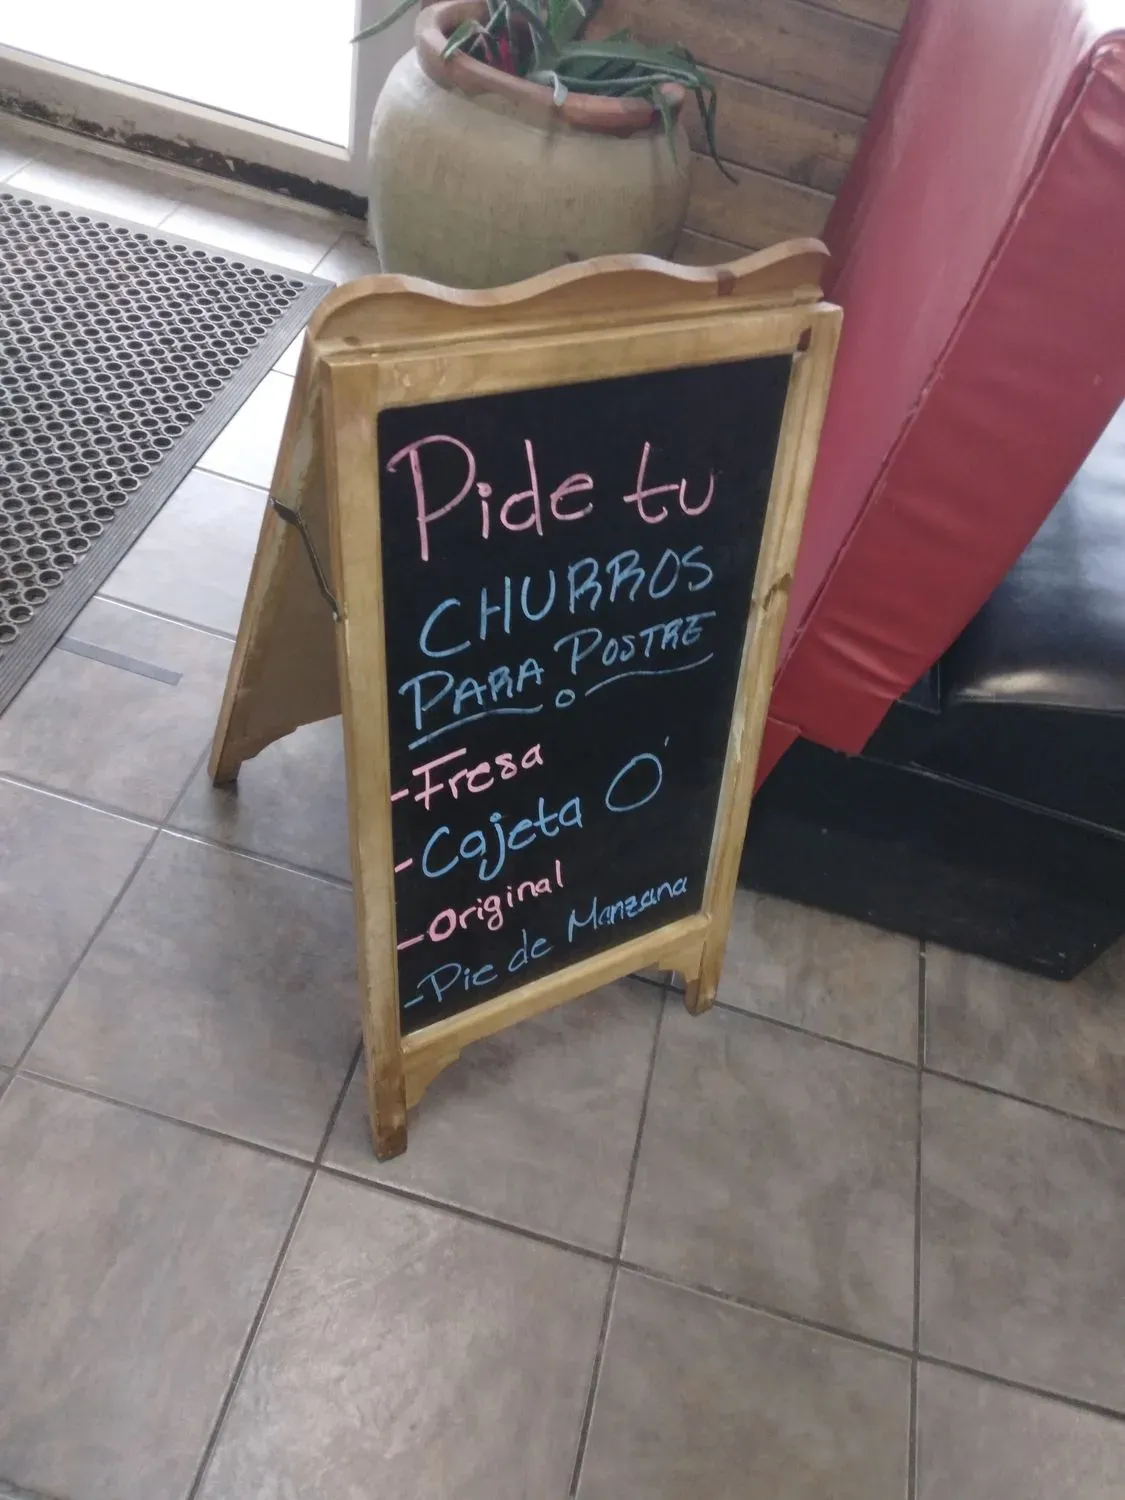 Pide tu
CHURROS
PARA POSTRE
-Fresa
-Cajeta Ó
-Original
-Pie de Manzana